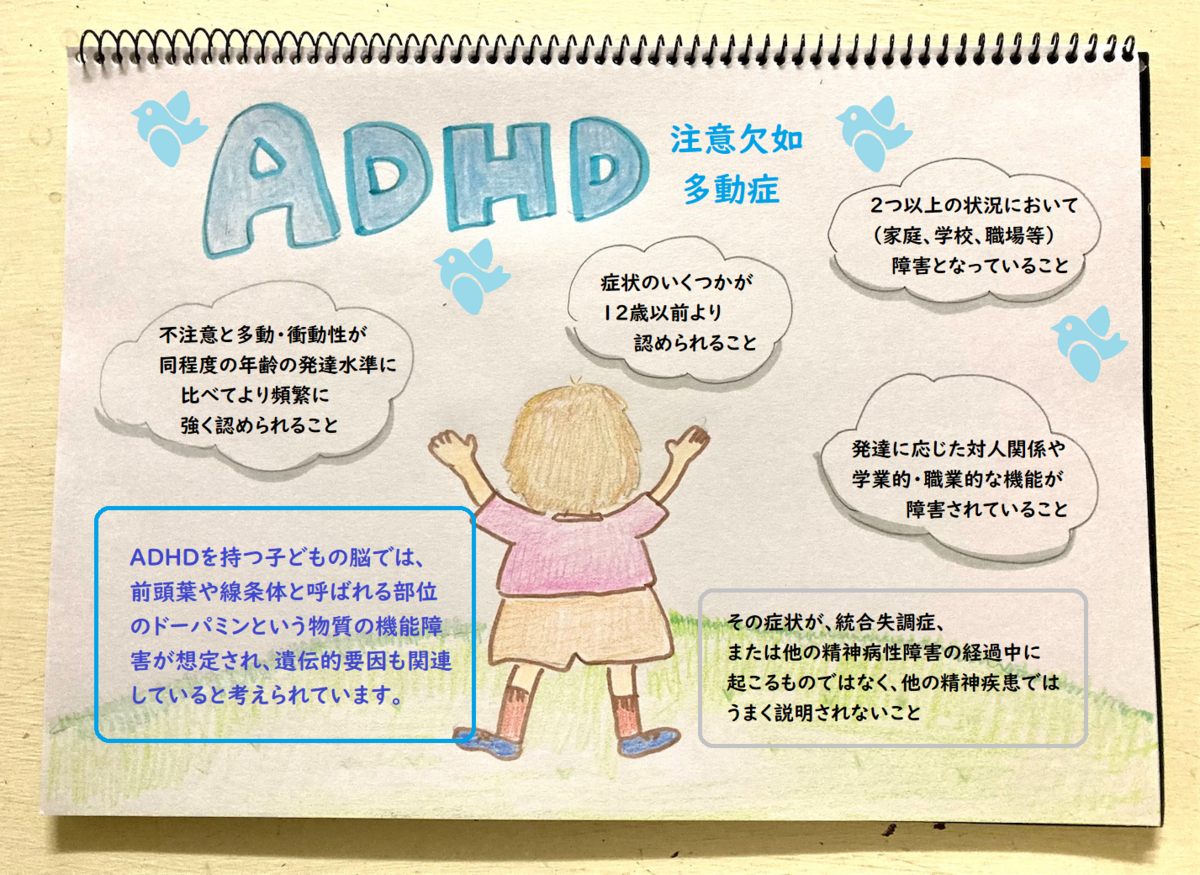 ADHD
注意欠如
多動症
2つ以上の状況において
（家庭、学校、職場等）
障害となっていること
症状のいくつかが
12歳以前より
認められること
不注意と多動・衝動性が
同程度の年齢の発達水準に
比べてより頻繁に
強く認められること
発達に応じた対人関係や
学業的・職業的な機能が
障害されていること
ADHDを持つ子どもの脳では、
前頭葉や線条体と呼ばれる部位
のドーパミンという物質の機能障
害が想定され、遺伝的要因も関連
していると考えられています。
その症状が、統合失調症、
または他の精神病性障害の経過中に
起こるものではなく、他の精神疾患では
うまく説明されないこと